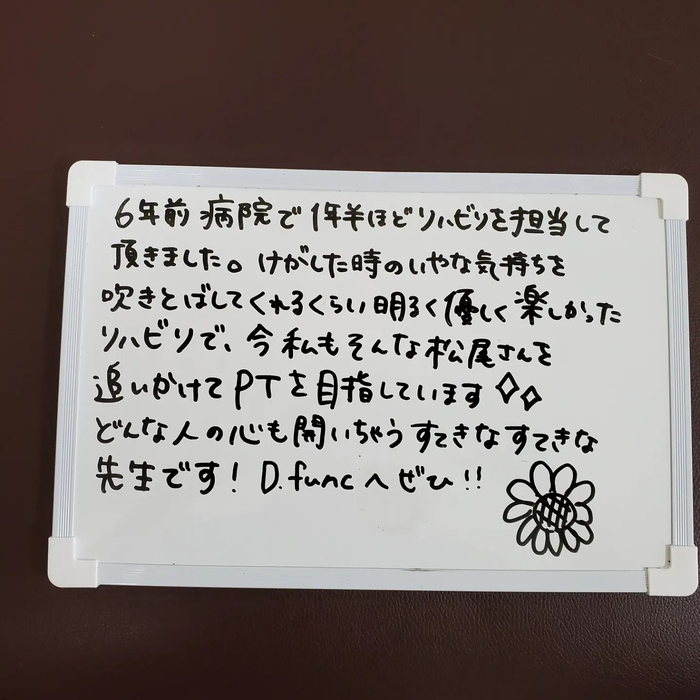 6年前 病院で 1年半ほどリハビリを担当して
頂きました。けがした時のいやな気持ちを
吹きとばしてくれるくらい明るく優しく楽しかった
リハビリで、今私もそんな松尾さんを
追いかけてPTを目指しています✧✧
どんな人の心も開いちゃうすてきなすてきな
先生です! D.funcへぜひ!!